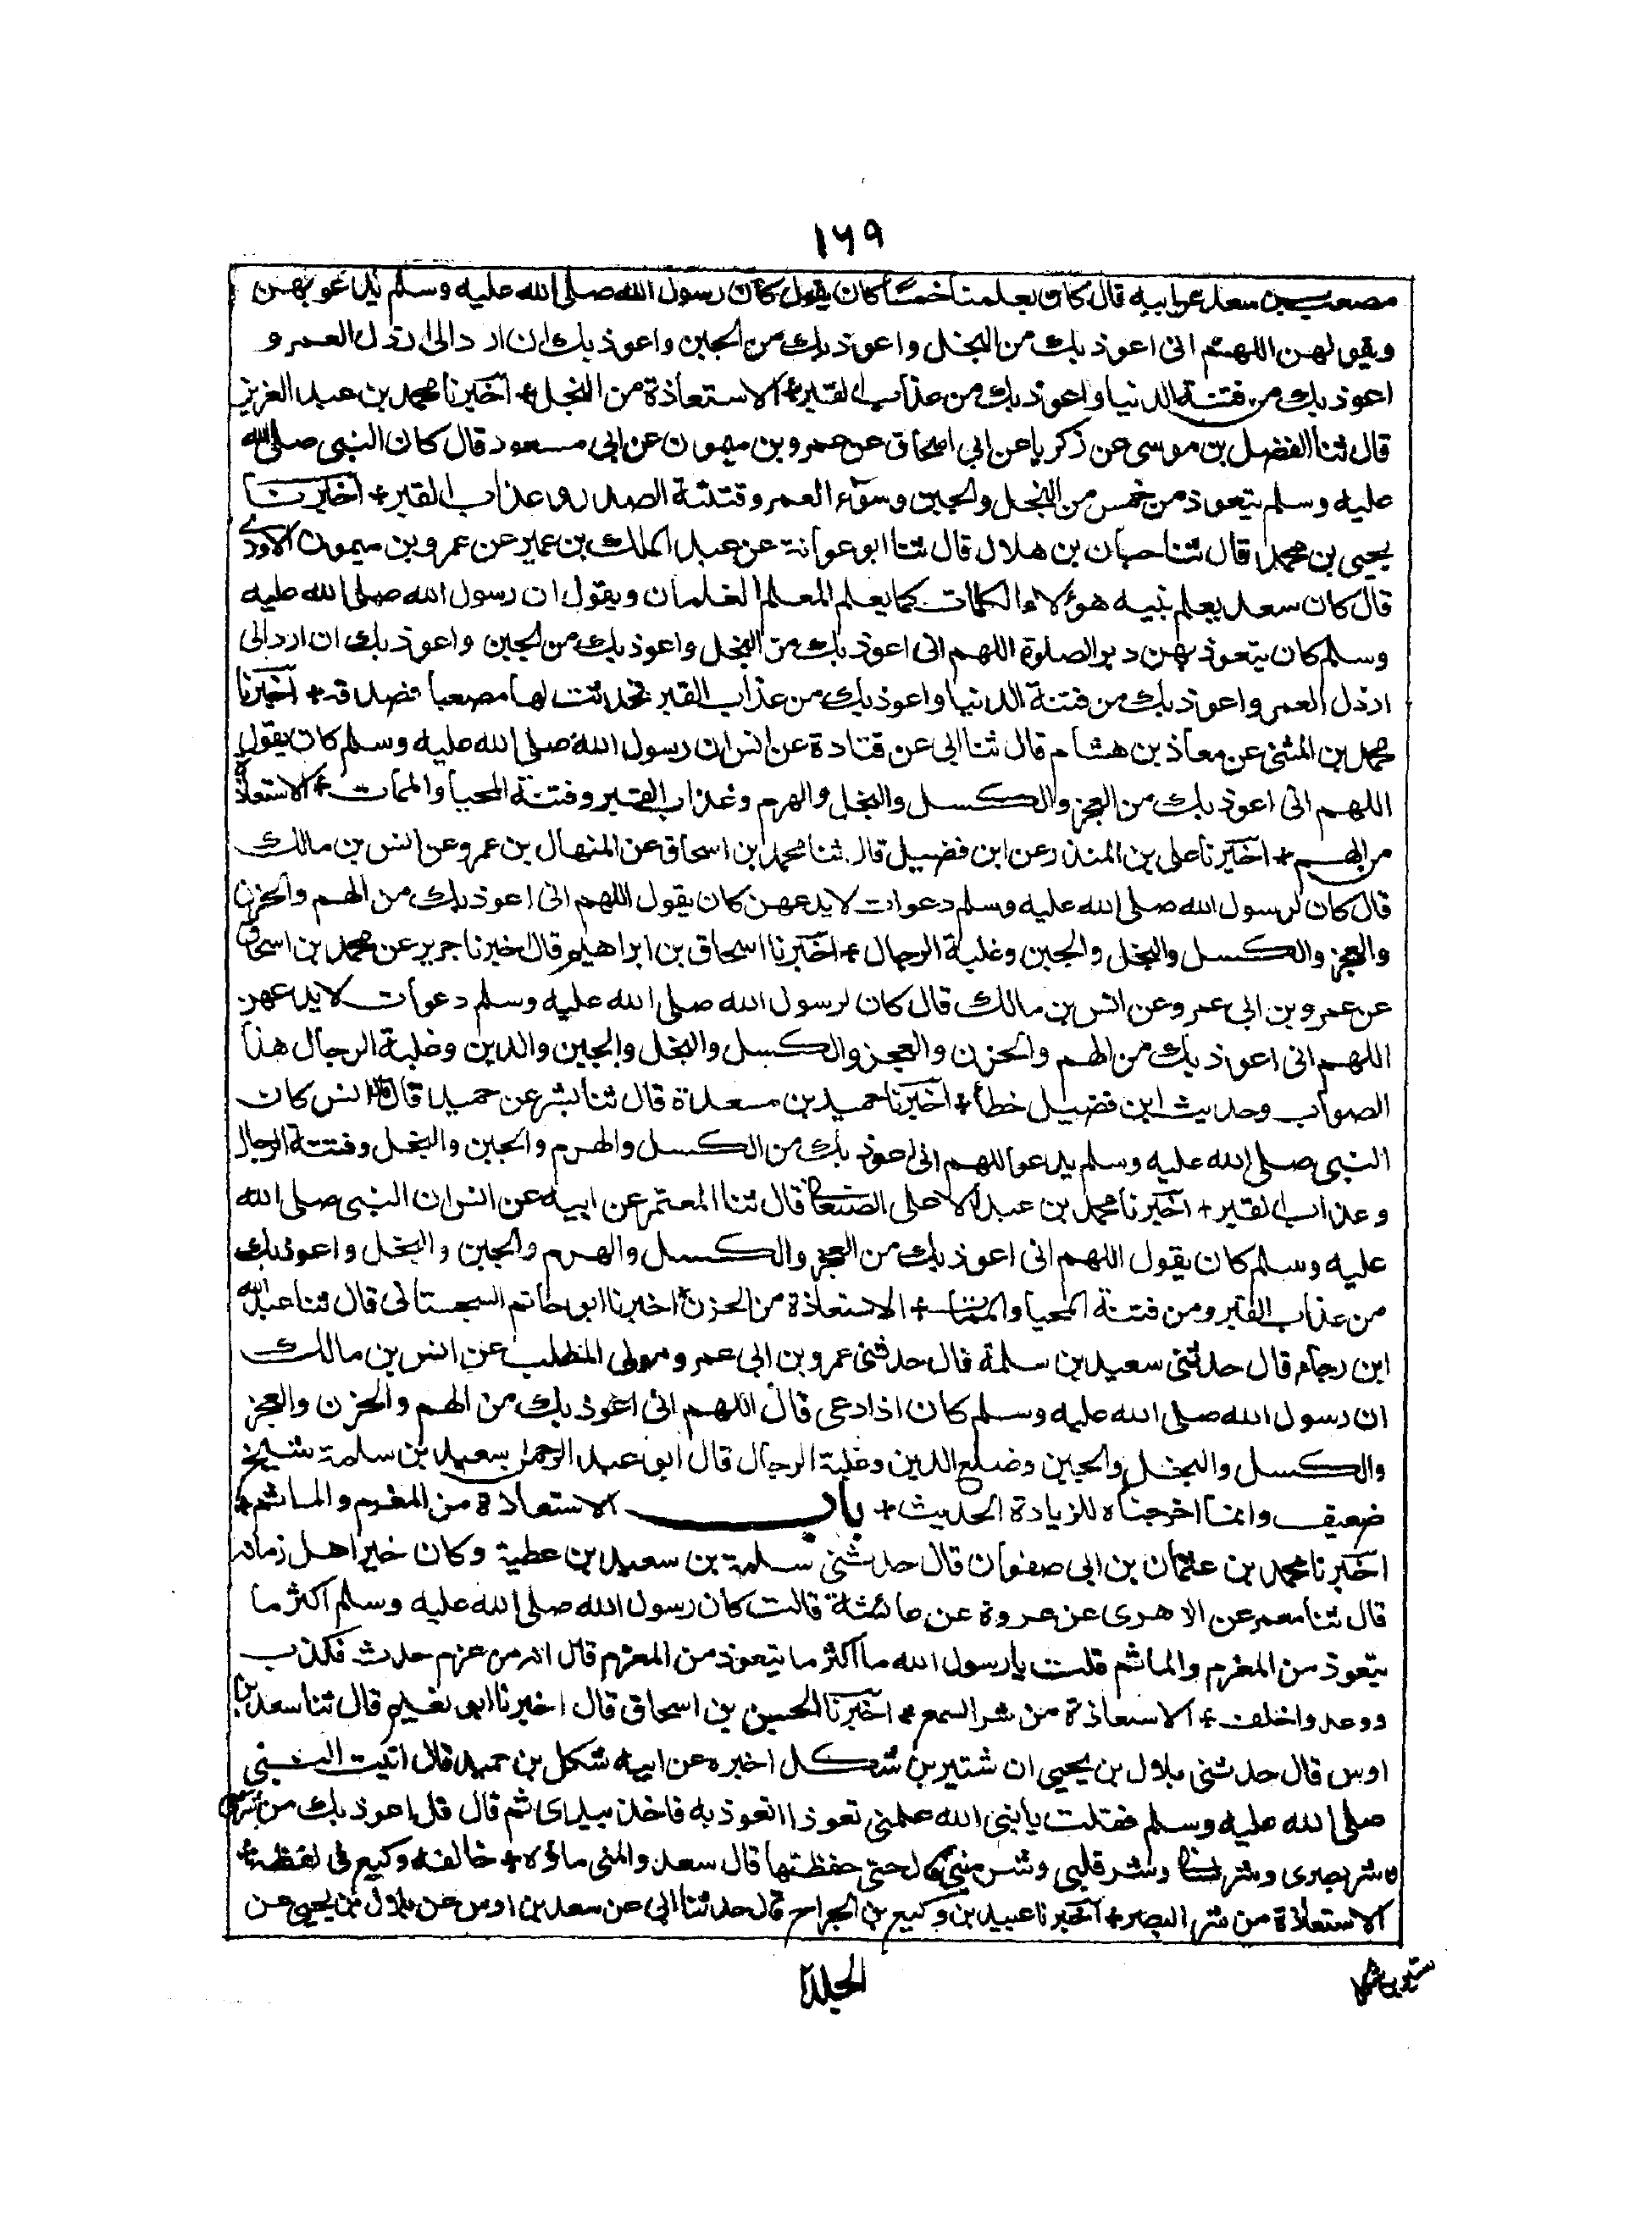 ١٦٩
مصعب بن سعد عن ابيه قال كان يعلمنا خمسا كان يقول كان رسول الله صلى الله عليه وسلم يدعو بهن
ويقولهن اللهم انى اعوذ بك من البخل واعوذ بك من الجبن واعوذ بك ان ارد الى ارذل العمر و
اعوذ بك من فتنة الدنيا واعوذ بك من عذاب القبر+ الاستعاذة من البخل+ اخبرنا محمد بن عبد العزيز
قال ثنا الفضل بن موسى عن زكريا عن ابى اسحاق عن عمرو بن ميمون عن ابى مسعود قال كان النبى صلى الله
عليه وسلم يتعوذ من خمس من البخل والجبن وسوء العمر وفتنة الصدر وعذاب القبر+ اخبرنا
يحيى بن محمد قال ثنا حبان بن هلال قال ثنا ابو عوانة عن عبد الملك بن عمير عن عمرو بن ميمون الاودى
قال كان سعد يعلم بنيه هؤلاء الكلمات كما يعلم المعلم الغلمان ويقول ان رسول الله صلى الله عليه
وسلم كان يتعوذ بهن دبر الصلوة اللهم انى اعوذ بك من البخل واعوذ بك من الجبن واعوذ بك ان ارد الى
ارذل العمر واعوذ بك من فتنة الدنيا واعوذ بك من عذاب القبر فحدثت بها مصعبا فصدقه+ اخبرنا
محمد بن المثنى عن معاذ بن هشام قال ثنا ابى عن قتادة عن انس ان رسول الله صلى الله عليه وسلم كان يقول
اللهم انى اعوذ بك من العجز والكسل والبخل والهرم وعذاب القبر وفتنة المحيا والممات+ الاستعاذة
من الهم+ اخبرنا على بن المنذر عن ابن فضيل قال ثنا محمد ابن اسحاق عن المنهال بن عمرو عن انس بن مالك
قال كان لرسول الله صلى الله عليه وسلم دعوات لا يدعهن كان يقول اللهم انى اعوذ بك من الهم والحزن
والعجز والكسل والبخل والجبن وغلبة الرجال+ اخبرنا اسحاق بن ابراهيم قال اخبرنا جرير عن محمد بن اسحاق
عن عمرو بن ابى عمرو عن انس بن مالك قال كان لرسول الله صلى الله عليه وسلم دعوات لا يدعهن
اللهم انى اعوذ بك من الهم والحزن والعجز والكسل والبخل والجبن والدين وغلبة الرجال هذا
الصواب وحديث ابن فضيل خطأ+ اخبرنا حميد بن مسعدة قال ثنا بشر عن حميد قال قال انس كان
النبى صلى الله عليه وسلم يدعو اللهم انى اعوذ بك من الكسل والهرم والجبن والبخل وفتنة الدجال
وعذاب القبر+ اخبرنا محمد بن عبد الاعلى الصنعانى قال ثنا المعتمر عن ابيه عن انس ان النبى صلى الله
عليه وسلم كان يقول اللهم انى اعوذ بك من العجز والكسل والهرم والجبن والبخل واعوذ بك
من عذاب القبر ومن فتنة المحيا والممات+ الاستعاذة من الحزن+ اخبرنا ابو حاتم السجستانى قال ثنا عبد الله
ابن رجاء قال حدثنى سعيد بن سلمة قال حدثنى عمرو بن ابى عمرو مولى المطلب عن انس بن مالك
ان رسول الله صلى الله عليه وسلم كان اذا دعى قال اللهم انى اعوذ بك من الهم والحزن والعجز
والكسل والبخل والجبن وضلع الدين وغلبة الرجال قال ابو عبد الرحمن سعيد بن سلمة شيخ
ضعيف وانما اخرجناه للزيادة الحديث+ باب الاستعاذة من المغرم والماثم+
اخبرنا محمد بن عثمان بن ابى صفوان قال حدثنى سلمة بن سعيد بن عطية وكان خير اهل زمانه
قال ثنا معمر عن الزهرى عن عروة عن عائشة قالت كان رسول الله صلى الله عليه وسلم اكثر ما
يتعوذ من المغرم والماثم قلت يا رسول الله ما اكثر ما تتعوذ من المغرم قال انه من غرم حدث فكذب
ووعد واخلف+ الاستعاذة من شر السمع+ اخبرنا الحسين بن اسحاق قال اخبرنا ابو نعيم قال ثنا سعد بن
اوس قال حدثنى بلال بن يحيى ان شتير بن شكل اخبره عن ابيه شكل بن حميد قال اتيت النبى
صلى الله عليه وسلم فقلت يا نبى الله علمنى تعوذا اتعوذ به فاخذ بيدى ثم قال قل اعوذ بك من شر سمعى
وشر بصرى وشر لسانى وشر قلبى وشر منيى قال حتى حفظتها قال سعد والمنى ماؤه+ خالفه وكيع فى لفظه+
الاستعاذة من شر البصر+ اخبرنا عبيد بن وكيع بن الجراح قال حدثنا ابى عن سعد بن اوس عن بلال بن يحيى عن